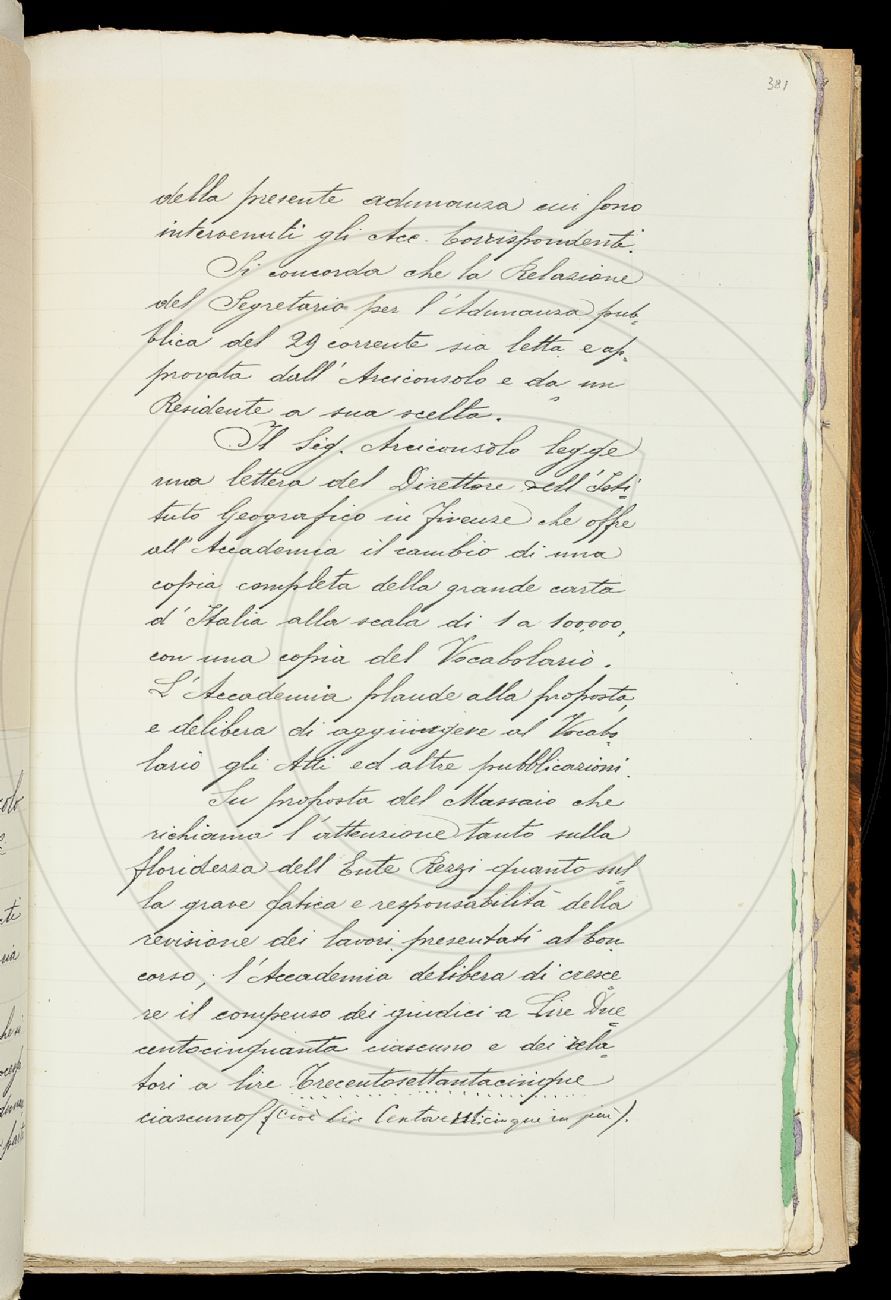 381
della presente adunanza cui sono
intervenuti gli Acc. Corrispondenti.
Si concorda che la Relazione
del Segretario per l'Adunanza pub-
blica del 29 corrente sia letta e ap-
provata dall'Arciconsolo e da un
Residente a sua scelta.
Il Sig. Arciconsolo legge
una lettera del Direttore dell'Isti-
tuto Geografico in Firenze che offre
all'Accademia il cambio di una
copia completa della grande carta
d'Italia alla scala di 1 a 100,000,
con una copia del Vocabolario.
L'Accademia plaude alla proposta,
e delibera di aggiungere al Vocabo-
lario gli Atti ed altre pubblicazioni.
Su proposta del Massaio che
richiama l'attenzione tanto sulla
floridezza dell Ente Rezzi quanto sul-
la grave fatica e responsabilità della
revisione dei lavori presentati al Con
corso; l'Accademia delibera di cresce-
re il compenso dei giudici a Lire Due-
centocinquanta ciascuno e dei rela-
tori a lire Trecentosettantacinque
ciascuno (cioè Lire Centoventicinque in più).